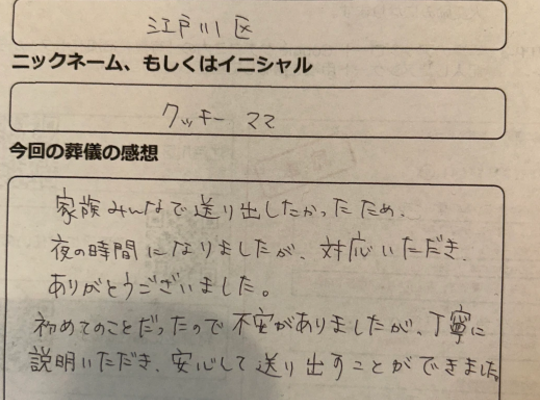 江戸川区
ニックネーム、もしくはイニシャル
クッキーママ
今回の葬儀の感想
家族みんなで送り出したかったため、
夜の時間になりましたが、対応いただき、
ありがとうございました。
初めてのことだったので不安がありましたが、丁寧に
説明いただき、安心して送り出すことができました